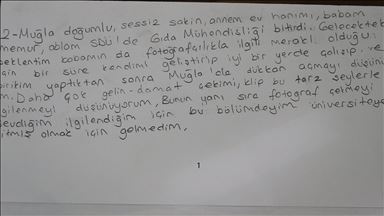 2-Muğla doğumlu, sessiz sakin, annem ev hanımı, babam
memur, ablam SDÜ'de Gıda Mühendisliği bitirdi. Gelecektek
beklentim babamın da fotoğrafçılıkla ilgili meraklı olduğu
için bir süre kendimi geliştirip iyi bir yerde çalışıp ve
birikim yaptıktan sonra Muğla'da dükkan açmayı düşünü
m. Daha çok gelin-damat çekimi, klip bu tarz şeylerle
ilgilenmeyi düşünüyorum, Bunun yanı sıra fotoğraf çekmeyi
sevdiğim ilgilendiğim için bu bölümdeyim üniversiteye
gitmiş olmak için gelmedim.
1